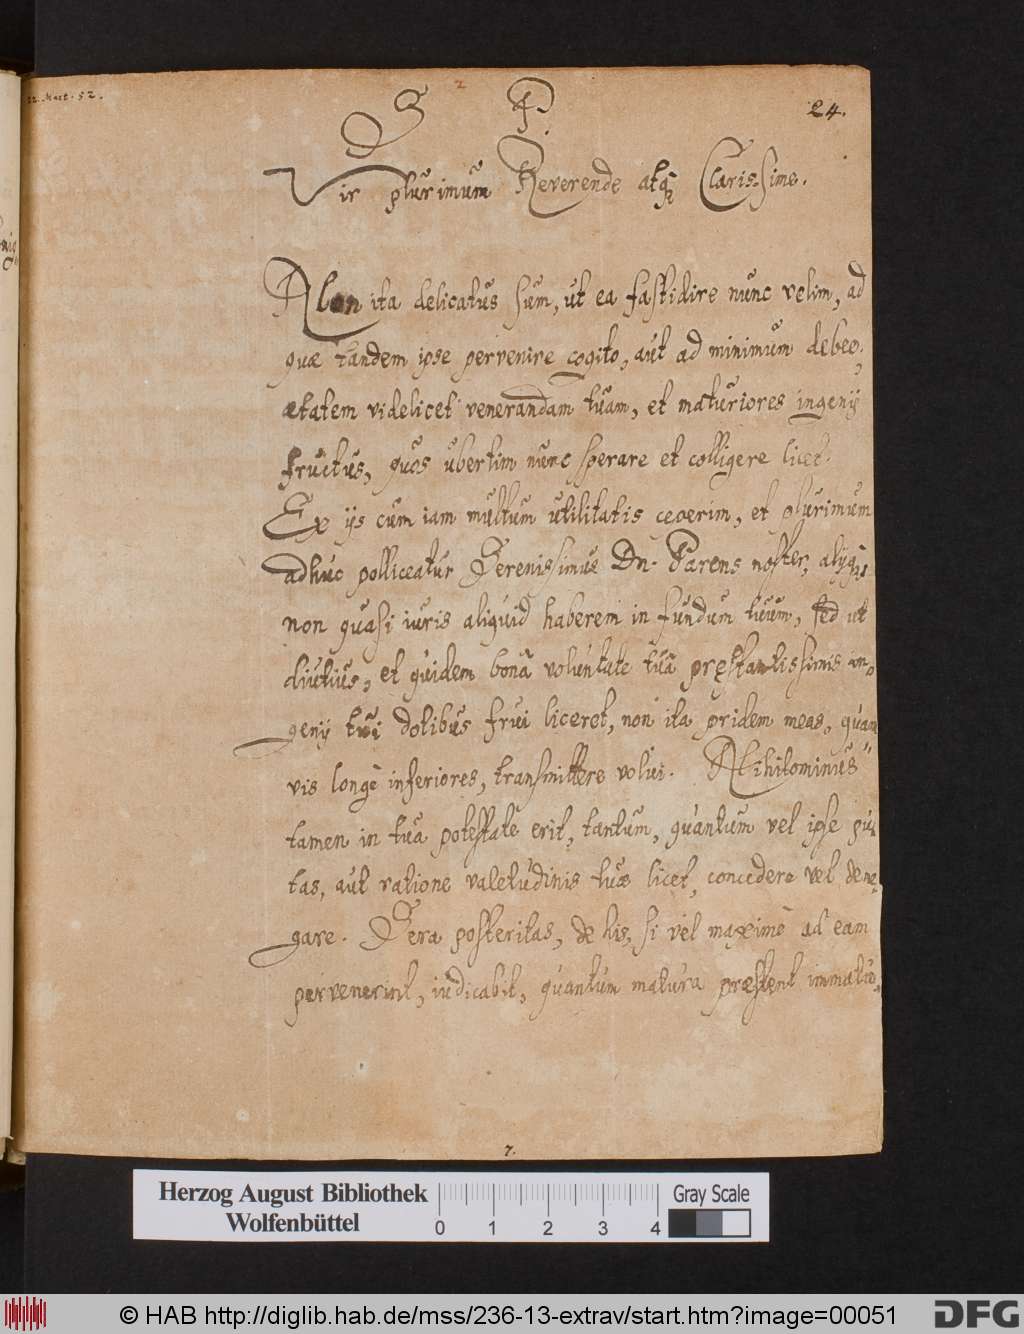 22. Mart. 52.
2
24.
S P
Vir plurimum Reverende atq; Clarissime.
Non ita delicatus sum, ut ea fastidire nunc velim, ad
quæ tandem ipse pervenire cogito, aut ad minimum debeo,
ætatem videlicet venerandam tuam, et maturiores ingenÿ
fructus, quos ubertim nunc sperare et colligere licet.
Ex ÿs cum iam multum utilitatis ceperim, et plurimum
adhuc polliceatur Serenissimus Dn. Parens noster, alÿq;
non quasi iuris aliquid haberem in fundum tuum, sed ut
diutius, et quidem bonâ voluntate tuâ præstantissimis in-
genÿ tui dotibus frui liceret, non ita pridem meas, quam
vis longè inferiores, transmittere volui. Nihilominus
tamen in tuâ potestate erit, tantum, quantum vel ipse pu-
tas, aut ratione valetudinis tuæ licet, concedere vel dene-
gare. Sera posteritas, de his, si vel maximè ad eam
pervenerint, iudicabit, quantum matura præstent immatu-
7.
Herzog August Bibliothek
Wolfenbüttel
0 1 2 3 4
Gray Scale
© HAB http://diglib.hab.de/mss/236-13-extrav/start.htm?image=00051
DFG